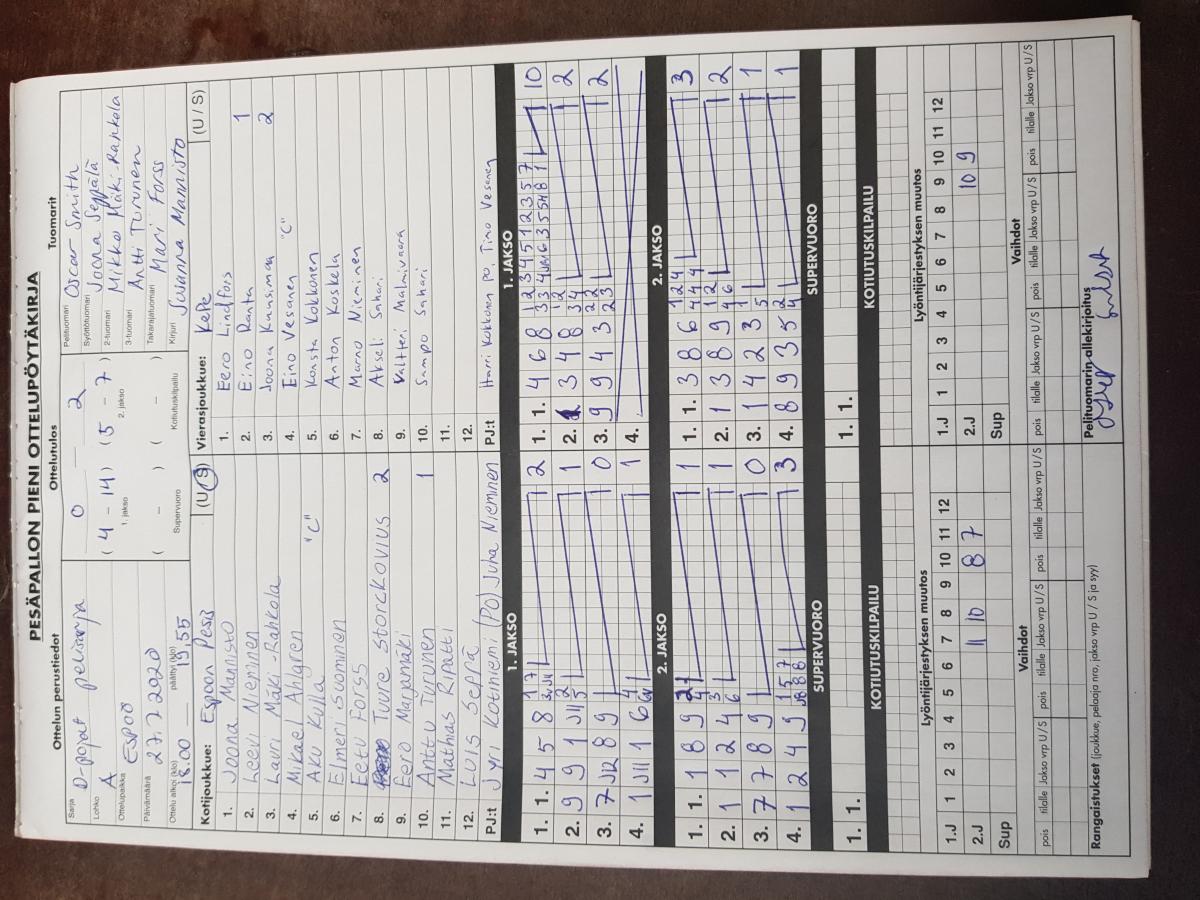 PESÄPALLON PIENI OTTELUPÖYTÄKIRJA
Ottelun perustiedot
Ottelutulos
Tuomarit
Sarja D-pojat
Lohko A
Ottelupaikka ESPOO
Päivämäärä 27.7.2020
Ottelu alkoi (klo) 18.00 päättyi (klo) 19,55
0 2
( 4 - 14 ) ( 5 - 7 )
1. jakso 2. jakso
( - ) ( - )
Supervuoro Kotiutuskilpailu
Pelituomari Oscar Smith
Syöttötuomari Joona Seppälä
2-tuomari Mikko Mäki-Rahkola
3-tuomari Antti Turunen
Takarajatuomari Mari Forss
Kirjuri Susanna Mannisto
Kotijoukkue: Espoon Pesis (U / S)
1. Joona Mannisto
2. Leevi Nieminen
3. Lauri Mäki-Rahkola
4. Mikael Ahlgren
5. Aku Kujla "C"
6. Elmeri Suominen
7. Eetu Forss
8. Tuure Storckovius 2
9. Eero Marjamäki
10. Anttu Turunen 1
11. Mathias Ripatti
12. Luis Seprä
PJ:t Jyri Kotiniemi (PJ) Juha Nieminen
Vierasjoukkue: KePe (U / S)
1. Eero Lindfors
2. Eino Ranta 1
3. Joona Kunsiman 2
4. Eino Vesanen "C"
5. Konsta Kokkonen
6. Anton Koskela
7. Marno Nieminen
8. Akseli Sahari
9. Valtteri Malmivaara
10. Sampo Sahari
11.
12.
PJ:t Harri Kokkonen PJ, Tino Vesanen
1. JAKSO
1. 1. 4 5 8 2
2. 9 9 1 1
3. 7 J12 8 9 0
4. 1 J11 1 6 1
1. JAKSO
1. 1. 4 6 8 10
2. 3 4 8 2
3. 9 9 4 3 2
4.
2. JAKSO
1. 1. 1 8 9 1
2. 1 1 2 4 1
3. 7 7 8 9 0
4. 1 2 4 9 3
2. JAKSO
1. 1. 3 8 6 3
2. 1 3 8 9 2
3. 1 4 2 3 1
4. 8 9 3 5 1
SUPERVUORO
1. 1.
SUPERVUORO
1. 1.
KOTIUTUSKILPAILU
KOTIUTUSKILPAILU
Lyöntijärjestyksen muutos
1.J 1 2 3 4 5 6 7 8 9 10 11 12
2.J 11 10 8 7
Sup
Lyöntijärjestyksen muutos
1.J 1 2 3 4 5 6 7 8 9 10 11 12
2.J 10 9
Sup
Vaihdot
pois tilalle Jakso vrp U / S pois tilalle Jakso vrp U / S pois tilalle Jakso vrp U / S
Vaihdot
pois tilalle Jakso vrp U / S pois tilalle Jakso vrp U / S pois tilalle Jakso vrp U / S
Rangaistukset (joukkue, pelaaja nro, jakso vrp U / S ja syy)
Pelituomarin allekirjoitus